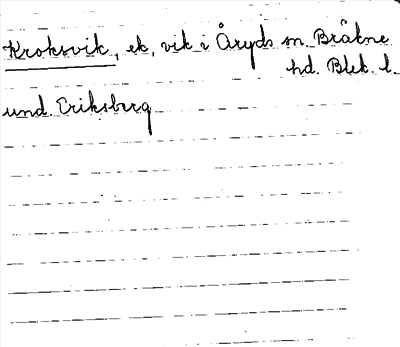 Kroksvik, ek, vik i Åryds sn. Bräkne
hd. Blek. l.
und. Eriksberg